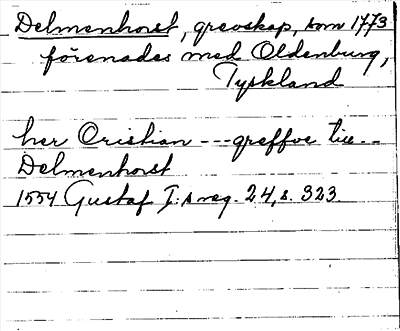 Delmenhorst, grevskap, som 1773
förenades med Oldenburg,
Tyskland
her Cristian --- greffve till --
Delmenhorst
1554 Gustaf I:s reg. 24, s. 323.